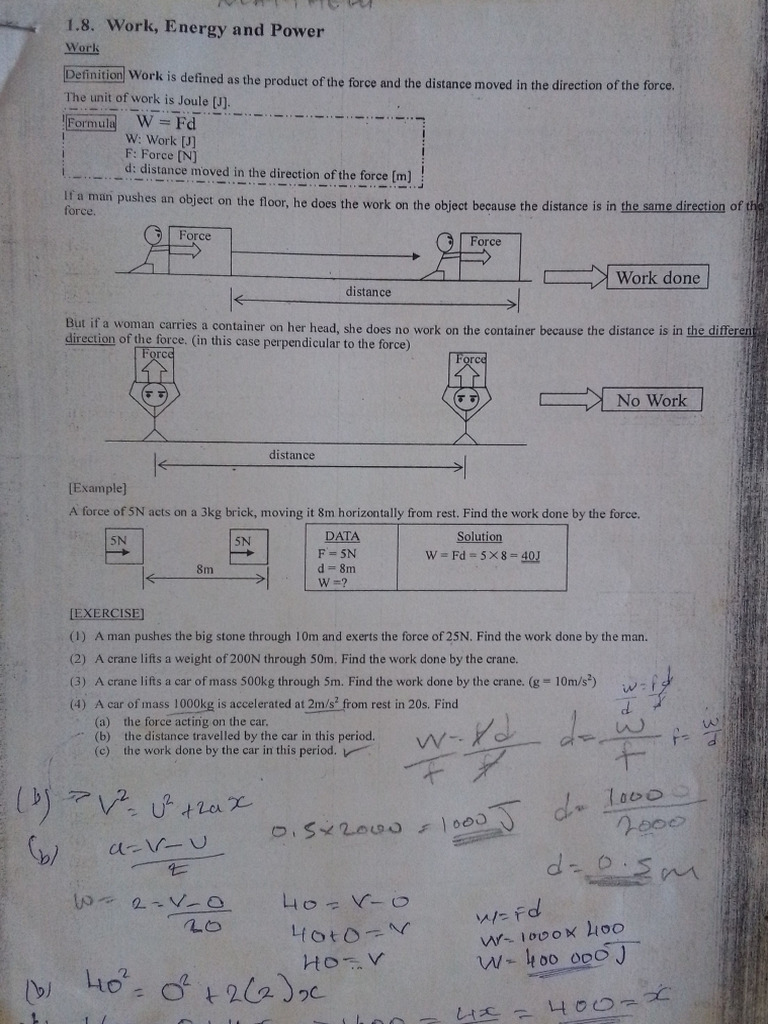 1.8. Work, Energy and Power
Work
Definition Work is defined as the product of the force and the distance moved in the direction of the force.
The unit of work is Joule [J].
Formula W = Fd
W: Work [J]
F: Force [N]
d: distance moved in the direction of the force [m]
If a man pushes an object on the floor, he does the work on the object because the distance is in the same direction of the
force.
Force Force
Work done
distance
But if a woman carries a container on her head, she does no work on the container because the distance is in the different
direction of the force. (in this case perpendicular to the force)
Force Force
No Work
distance
[Example]
A force of 5N acts on a 3kg brick, moving it 8m horizontally from rest. Find the work done by the force.
5N 5N
8m
DATA
F = 5N
d = 8m
W =?
Solution
W = Fd = 5 × 8 = 40J
[EXERCISE]
(1) A man pushes the big stone through 10m and exerts the force of 25N. Find the work done by the man.
(2) A crane lifts a weight of 200N through 50m. Find the work done by the crane.
(3) A crane lifts a car of mass 500kg through 5m. Find the work done by the crane. (g = 10m/s²)
(4) A car of mass 1000kg is accelerated at 2m/s² from rest in 20s. Find
(a) the force acting on the car.
(b) the distance travelled by the car in this period.
(c) the work done by the car in this period. ✓
w = fd
d d
W = Fd
F F
d = W
F
F = W
d
(b) ⇒ V² = U² + 2ax
0.5 × 2000 = 1000 J
d = 1000
2000
(b) a = V - U
t
d = 0.5 m
W = 2 = V - 0
20
40 = V - 0
40 + 0 = V
40 = V
W = Fd
W = 1000 × 400
W = 400 000 J
(b) 40² = 0² + 2(2)x
= 4x = 400 = x